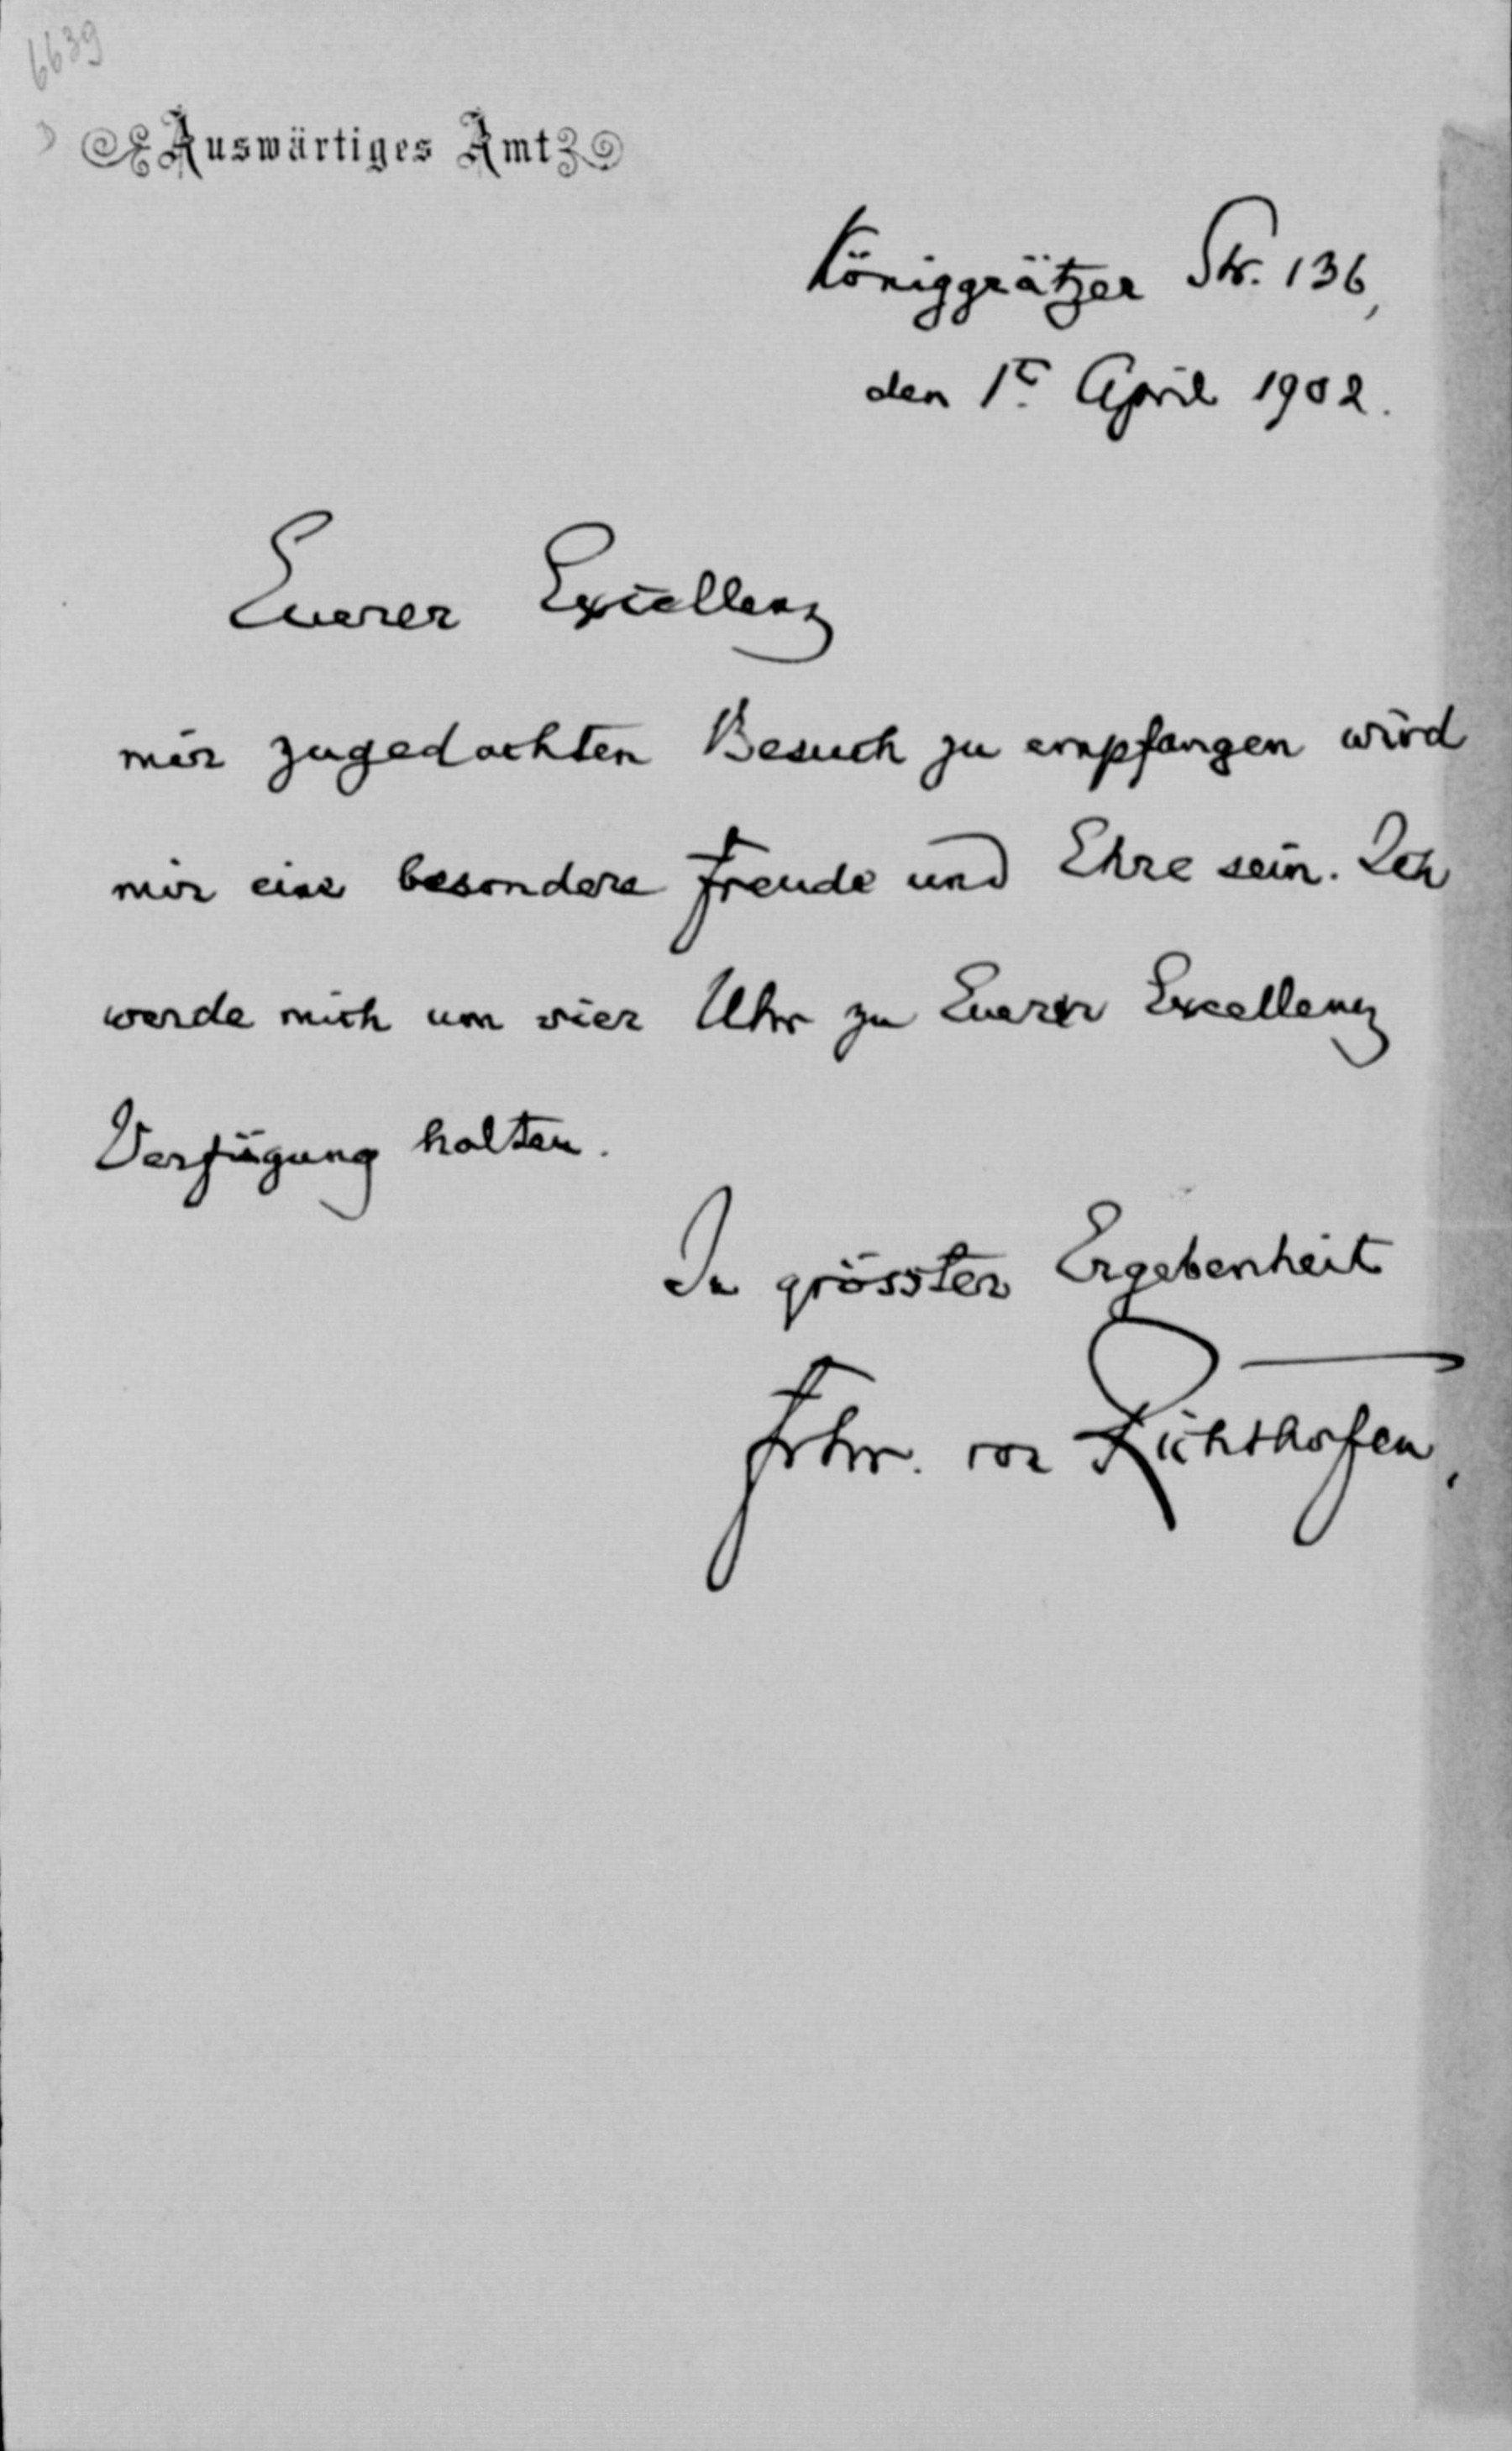 6639
Auswärtiges Amt
Königgrätzer Str. 136,
den 1t. April 1902.
Euerer Excellenz
mir zugedachten Besuch zu empfangen wird
mir eine besondere Freude und Ehre sein. Ich
werde mich um vier Uhr zu Euerer Excellenz
Verfügung halten.
In grösster Ergebenheit
Frhr. von Richthofen.